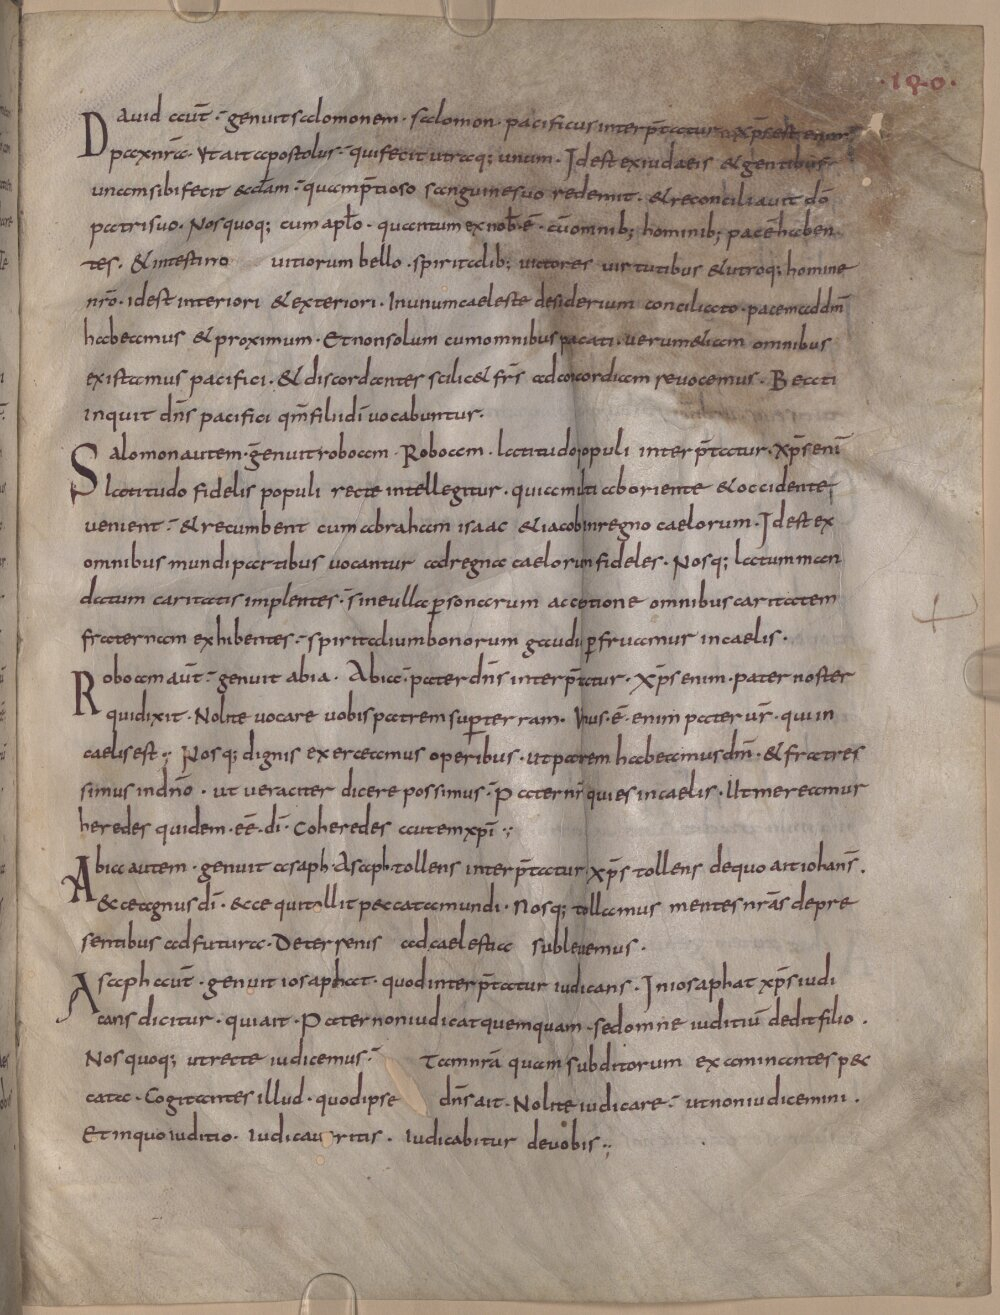 ·190·
David aut̄ · genuit salomonem · salomon · pacificus interp̄tatur xp̄s est enim
pax nr̄a · Ut ait apostolus · qui fecit utraq; unum · Id est ex iudaeis & gentibus
unam sibi fecit eccl̄am · quam p̄tioso sanguine suo redemit · & reconciliauit dō
patri suo · Nos quoq; cum apl̄o · quantum ex nob̄ ē · cū omnib; hominib; pacē haben
tes · & intestino uitiorum bello · spiritalib; uictores uirtutibus & utroq; homine
nr̄o · id est interiori & exteriori · In unum caeleste desiderium conciliato · pacem ad dm̄
habeamus & proximum · Et non solum cum omnibus pacati · uerum etiam omnibus
existamus pacifici · & discordantes scilic& fr̄s ad concordiam reuocemus · Beati
inquit dn̄s pacifici qm̄ filii di uocabuntur ·
Salomon autem · genuit roboam · Roboam · latitudo populi interp̄tatur · xp̄s eni
latitudo fidelis populi recte intellegitur · quia multi ab oriente & occidente
uenient · & recumbent cum abraham isaac & iacob in regno caelorum · Id est ex
omnibus mundi partibus uocantur ad regna caelorum fideles · Nosq; latum man
datum caritatis implentes · sine ulla psonarum acceptione omnibus caritatem
fraternam exhibentes · spiritalium bonorum gaudi pfruamur in caelis ·
Roboam aut̄ · genuit abia · Abia · pater dn̄s interp̄tatur · Xp̄s enim · pater noster
qui dixit · Nolite uocare uobis patrem sup terram · Unus · ē · enim pater ur̄ · qui in
caelis est ; Nosq; dignis exerceamus operibus · ut patrem habeamus dm̄ · & fratres
simus in dn̄o · ut ueraciter dicere possimus · Pater nr̄ qui es in caelis · Ut mereamur
heredes quidem · eē · di · Coheredes autem xpi ·;
Abia autem · genuit asaph · Asaph · tollens interp̄tatur xp̄s tollens de quo ait iohan̄s ·
& ce agnus di · ecce qui tollit peccata mundi · Nosq; tollamus mentes nr̄as de pre
sentibus ad futura · De terrenis ad caelestia subleuemus ·
Asaph aut̄ · genuit iosaphat · quod interp̄tatur iudicans · In iosaphat xp̄s iudi
cans dicitur · qui ait · Pater non iudicat quemquam · sed omne iuditiū dedit filio ·
Nos quoq; ut recte iudicemus · Tam nrā quam subditorum examinantes pec
cata · Cogitantes illud · quod ipse dn̄s ait · Nolite iudicare · ut non iudicemini ·
Et in quo iuditio · iudicaueritis · iudicabitur de uobis ·;